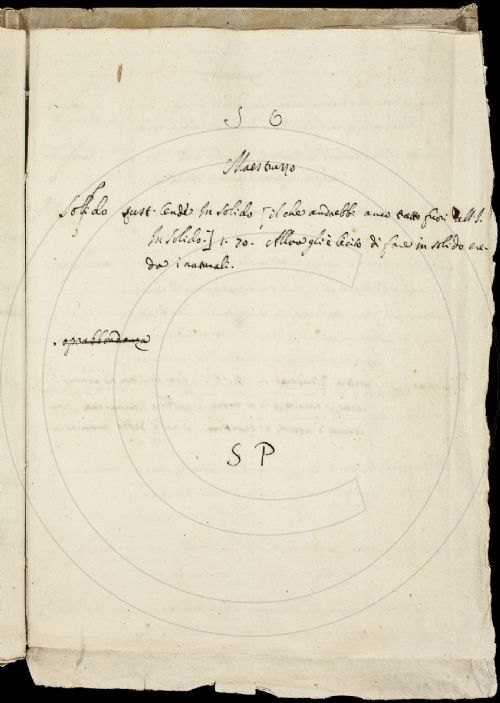 S O
Maestruzzo
Solido sust. Onde In solido [il che andrebbe anco tratto fuori all' I.
In solido.] 1. 70. Allora gli è lecito di fare in solido ere-
da i naturali.
. opraabbondanza
S P